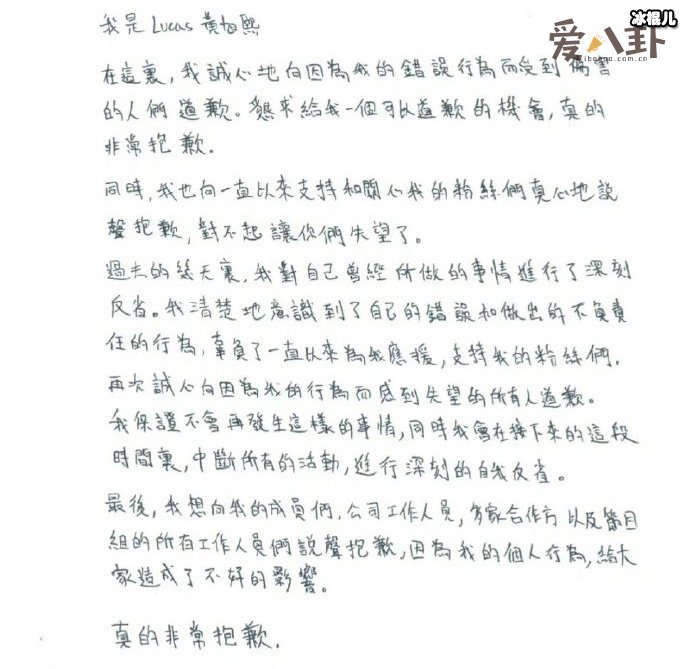 冰棍儿
爱八卦
我是 Lucas 黃旭熙
在這裏，我誠心地向因為我的錯誤行為而受到傷害
的人們道歉。懇求給我一個可以道歉的機會，真的
非常抱歉。
同時，我也向一直以來支持和關心我的粉絲們真心地說
聲抱歉，對不起讓你們失望了。
過去的幾天裏，我對自己曾經所做的事情進行了深刻
反省。我清楚地意識到了自己的錯誤和做出的不負責
任的行為，辜負了一直以來為我應援，支持我的粉絲們.
再次誠心向因為我的行為而感到失望的所有人道歉。
我保證不會再發生這樣的事情，同時我會在接下來的這段
時間裏，中斷所有的活動，進行深刻的自我反省。
最後，我想向我的成員們.公司工作人員，多家合作方以及節目
組的所有工作人員們說聲抱歉，因為我的個人行為，給大
家造成了不好的影響。
真的非常抱歉.